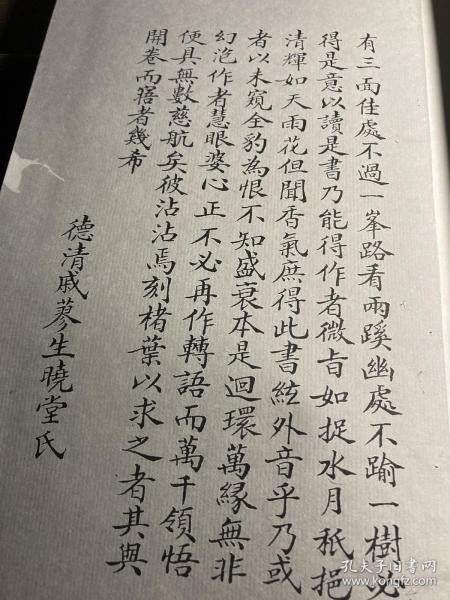 有三面佳處不過一峯路看兩蹊幽處不踰一樹必
得是意以讀是書乃能得作者微旨如捉水月祇挹
清輝如天雨花但聞香氣庶得此書絃外音乎乃或
者以未窺全豹為恨不知盛衰本是迴環萬緣無非
幻泡作者慧眼婆心正不必再作轉語而萬千領悟
便具無數慈航矣彼沾沾焉刻楮葉以求之者其與
開卷而寤者幾希
德清戚蓼生曉堂氏
孔夫子旧书网
www.kongfz.com